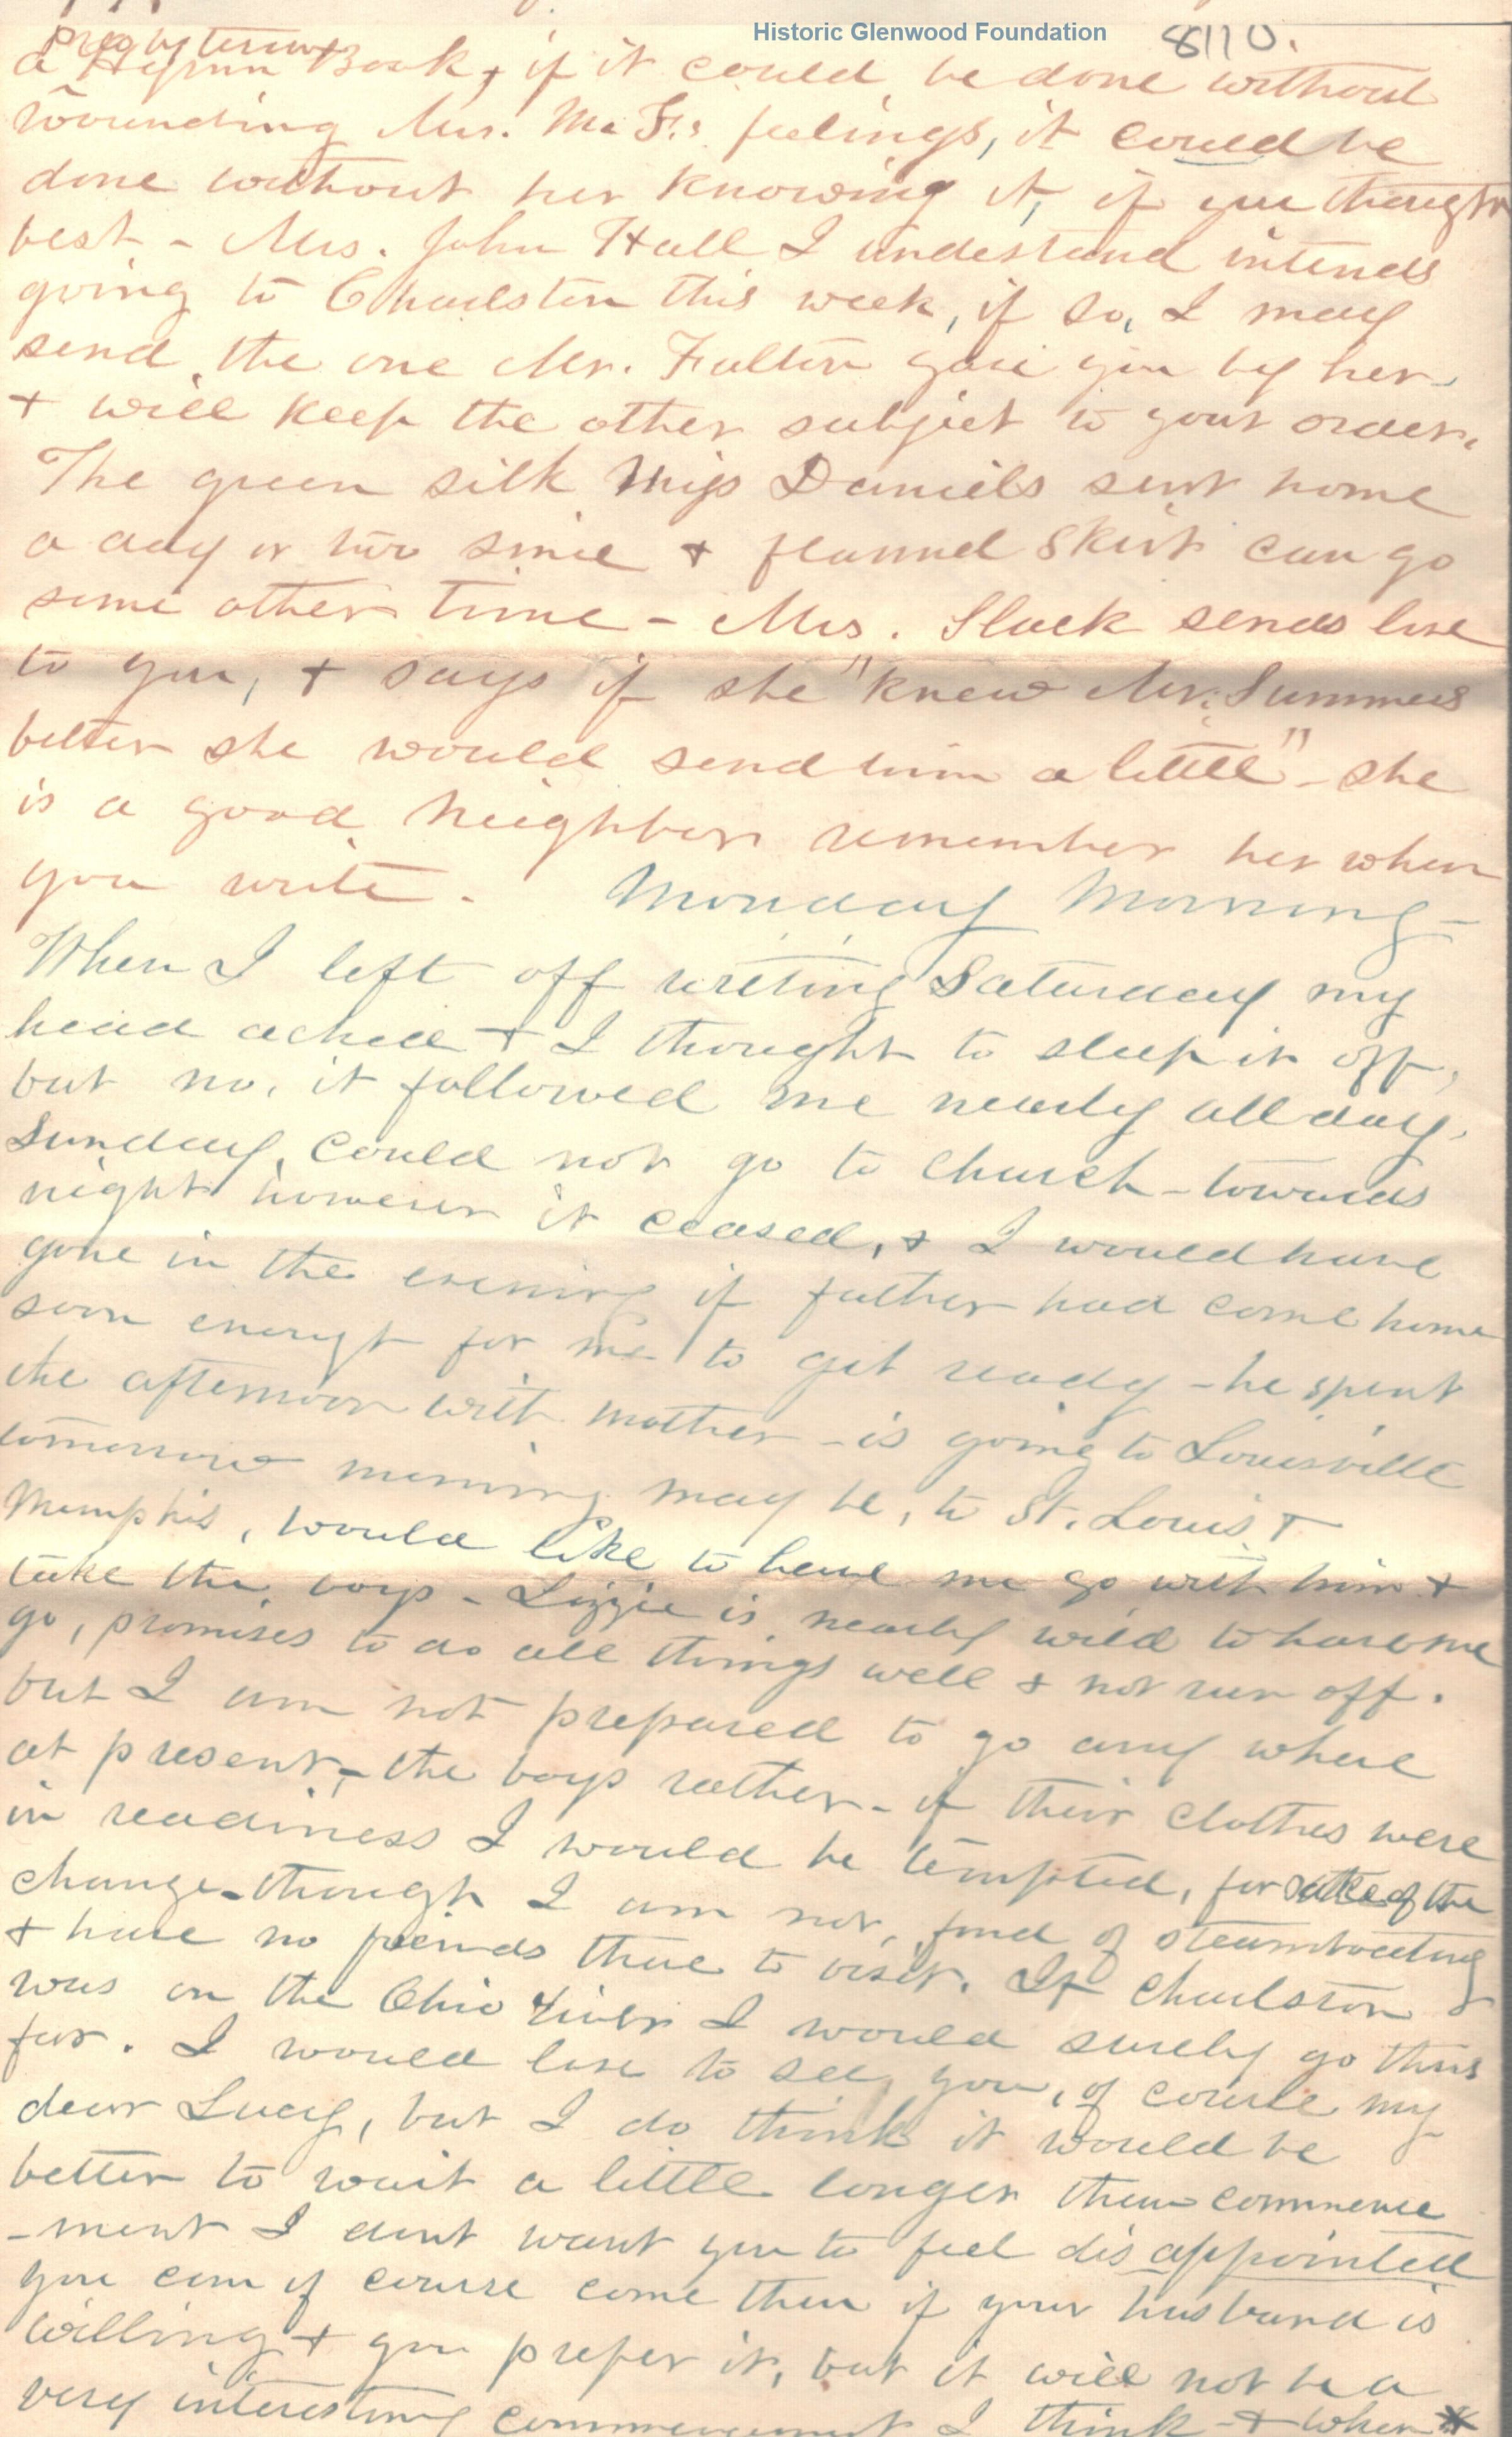 Historic Glenwood Foundation
8110.
Presbyterian
a Hymn Book, if it could be done without
wounding Mrs. Mc F.s feelings, it could be
done without her knowing it, if you thought
best - Mrs. John Hall I undestand intends
going to Charlston this week, if so, I may
send the one Mr. Fulton gave you by her -
+ will keep the other subject to your order.
The green silk Miss Daniels sent home
a day or two since + flannel skirt can go
some other time - Mrs. Slack sends love
to you, + says if she "knew Mr. Summers
better she would send him a little" - she
is a good neighbor remember her when
you write. Monday Morning -
When I left off writing Saturday my
head ached + I thought to sleep it off,
but no, it followed me nearly all day.
Sunday, could not go to church - towards
night however it ceased, + I would have
gone in the evening if father had come home
soon enough for me to get ready - he spent
the afternoon with mother - is going to Louisville
tomorrow morning may be, to St. Louis +
Memphis, would like to have me go with him +
take the boys - Lizzie is nearly wild to have me
go, promises to do all things well + not run off.
but I am not prepared to go any where
at present, - the boys rather - if their clothes were
in readiness I would be tempted, for sake of the
change - though I am not fond of steamboating
+ have no friends there to visit. If Charlston
was on the Ohio river I would surely go thus
far. I would love to see you, of course my
dear Lucy, but I do think it would be
better to wait a little longer than commence
-ment I dont want you to feel disappointed
you can of course come then if your husband is
willing + you prefer it, but it will not be a
very interesting commencement I think - + when *